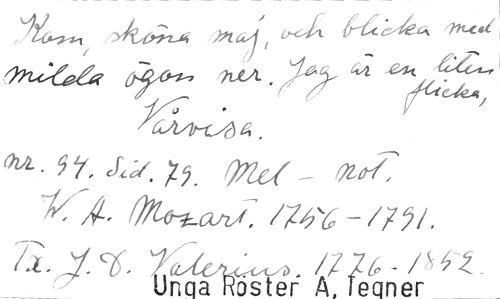 Kom, sköna maj, och blicka med
milda ögon ner. Jag är en liten
flicka,
Vårvisa.
nr. 94. Sid. 79. Mel – not.
W. A. Mozart. 1756–1791.
Tx. J. D. Valerius. 1776-1852.
Unga Röster A, Tegner